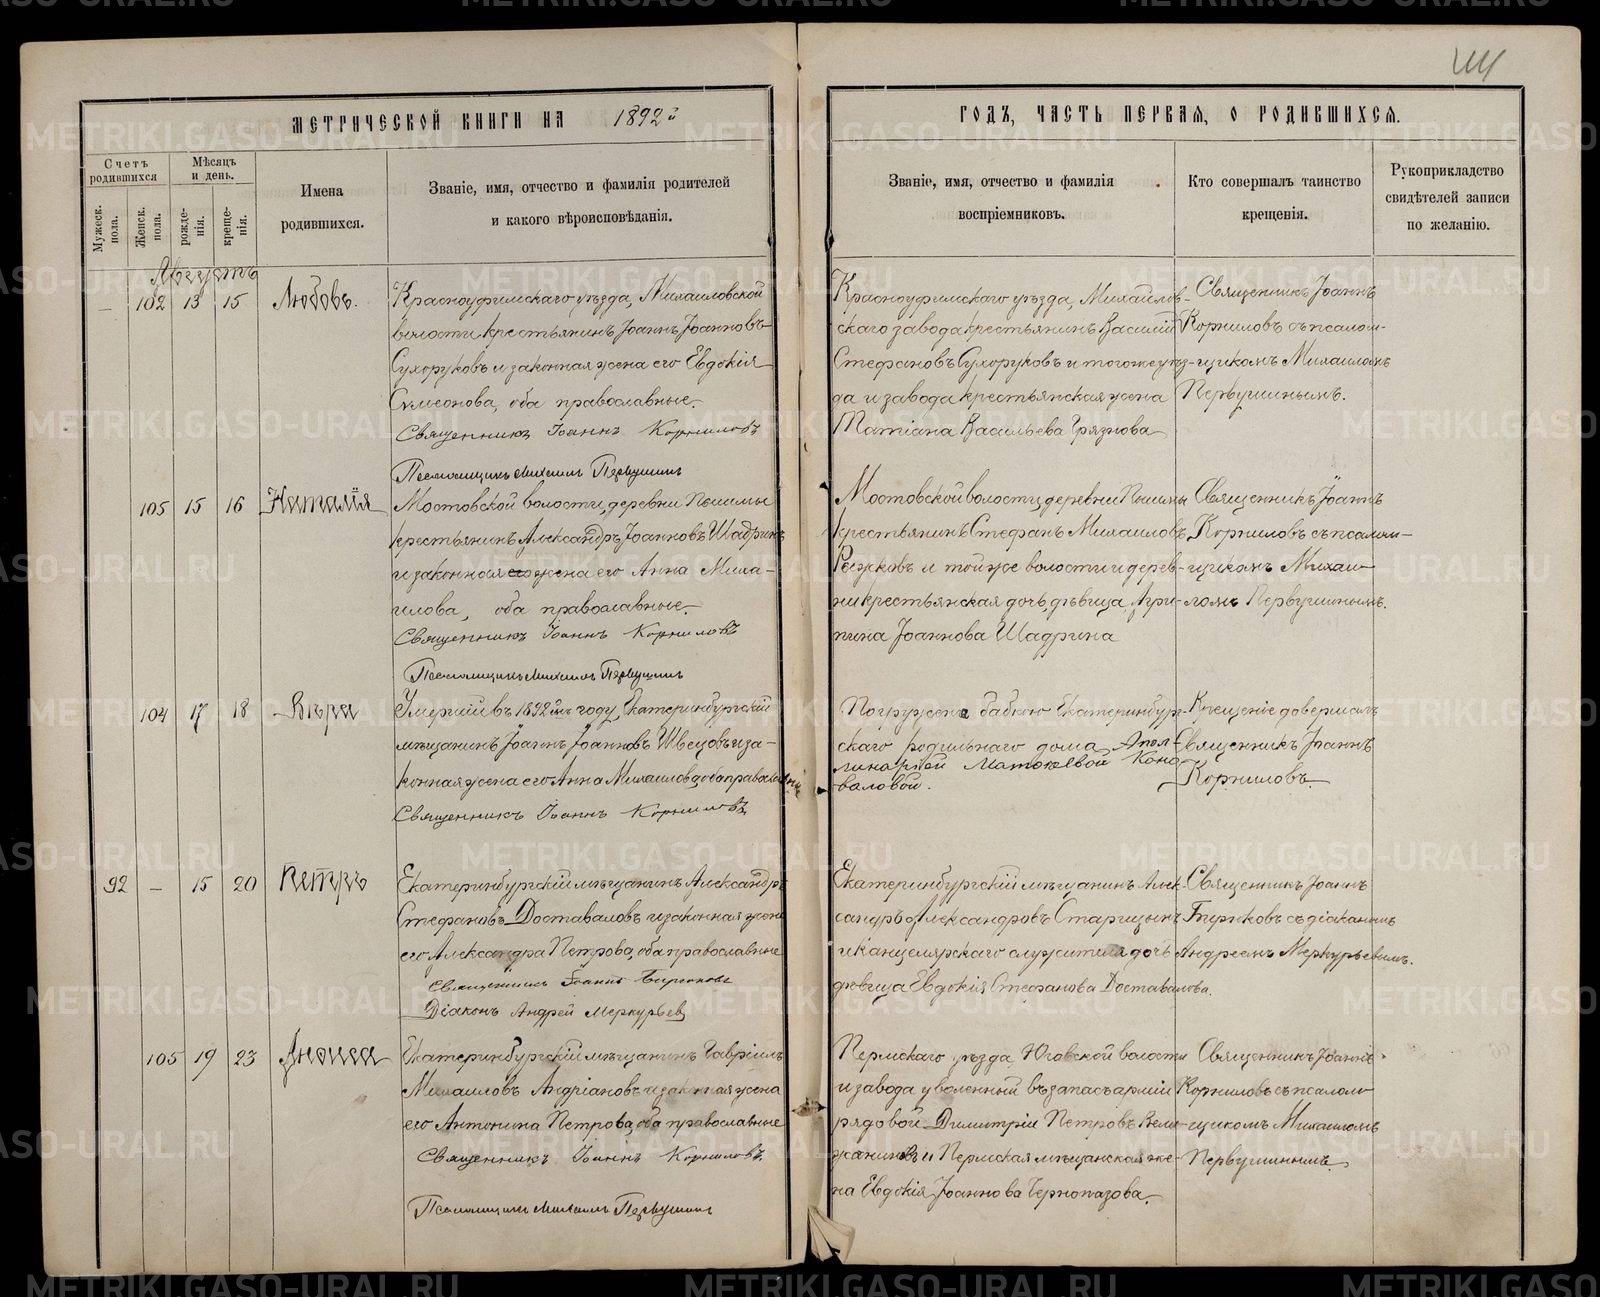 МЕТРИЧЕСКОЙ КНИГИ НА 1892й
Счетъ родившихся
Мужеск. пола.
Женск. пола.
Мѣсяцъ и день.
рожде-нія.
креще-нія.
Имена
родившихся.
Званіе, имя, отчество и фамилія родителей
и какого вѣроисповѣданія.
Августъ
— 102 13 15 Любовь.
Красноуфимскаго уѣзда, Михаиловской
волости крестьянинъ Іоаннъ Іоанновъ
Сухоруковъ и законная жена его Евдокія
Сѵмеонова, оба православные.
Священникъ Іоаннъ Корниловъ
Псаломщикъ Михаилъ Первушинъ
105 15 16 Наталія
Мостовской волости, деревни Пышмы
крестьянинъ Александръ Іоанновъ Шадринъ
и законная жена его Анна Миха-
илова, оба православные.
Священникъ Іоаннъ Корниловъ
Псаломщикъ Михаилъ Первушинъ
104 17 18 Вѣра
Умершій въ 1892 мъ году, Екатеринбургскій
мѣщанинъ Іоаннъ Іоанновъ Швецовъ и за-
конная жена его Анна Михаилова, оба православные
Священникъ Іоаннъ Корниловъ
92 — 15 20 Петръ
Екатеринбургскій мѣщанинъ Александръ
Стефановъ Доставаловъ и законная жена
его Александра Петрова, оба православные
Священникъ Іоаннъ Бирюковъ
Діаконъ Андрей Меркурьевъ
105 19 23 Анѳиса
Екатеринбургскій мѣщанинъ Гавріилъ
Михаиловъ Андріановъ и законная жена
его Антонина Петрова, оба православные
Священникъ Іоаннъ Корниловъ
Псаломщикъ Михаилъ Первушинъ
ГОДЪ, ЧАСТЬ ПЕРВАЯ, О РОДИВШИХСЯ.
Званіе, имя, отчество и фамилія
воспріемниковъ.
Кто совершалъ таинство
крещенія.
Рукоприкладство
свидѣтелей записи
по желанію.
Красноуфимскаго уѣзда, Михайлов-
скаго завода крестьянинъ Василій
Стефановъ Сухоруковъ и того же уѣз-
да и завода крестьянская жена
Татіана Васильева Грязнова
Священникъ Іоаннъ
Корниловъ съ псалом-
щикомъ Михаиломъ
Первушинымъ.
Мостовской волости, деревни Пышмы
крестьянинъ Стефанъ Михаиловъ
Рѣжковъ и той же волости и дерев-
ни крестьянская дочь, дѣвица Агри-
пина Іоаннова Шадрина
Священникъ Іоаннъ
Корниловъ съ псалом-
щикомъ Михаи-
ломъ Первушинымъ.
Погружена бабкою Екатеринбург-
скаго родильнаго дома Апол-
линаріей Матвѣевой Коно-
валовой.
Крещеніе довершалъ
Священникъ Іоаннъ
Корниловъ.
Екатеринбургскій мѣщанинъ Алек-
сандръ Александровъ Старицынъ
и канцелярскаго служителя дочь
дѣвица Евдокія Стефанова Доставалова.
Священникъ Іоаннъ
Бирюковъ съ діакономъ
Андреемъ Меркурьевымъ.
Пермскаго уѣзда, Юговской волости
и завода уволенный въ запасъ арміи
рядовой Димитрій Петровъ Веле-
жанинъ и Пермская мѣщанская же-
на Евдокія Іоаннова Чернопазова.
Священникъ Іоаннъ
Корниловъ съ псалом-
щикомъ Михаиломъ
Первушинымъ
METRIKI.GASO-URAL.RU